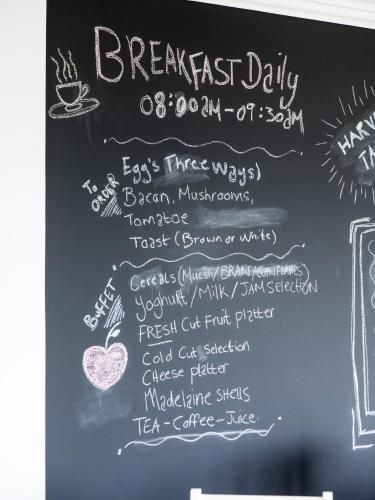 BREAKFAST Daily
08:00am - 09:30am
HARV
TA
To ORDER
Egg's Three Ways)
Bacon, Mushrooms,
Tomatoe
Toast (Brown or White)
BUFFET
Cereals (Muesli/BRAN/CORNFLAKES)
Yoghurt / Milk / JAM Selection
FRESH Cut Fruit platter
Cold Cut Selection
CHeese platter
Madelaine SHELLS
TEA - Coffee - Juice.